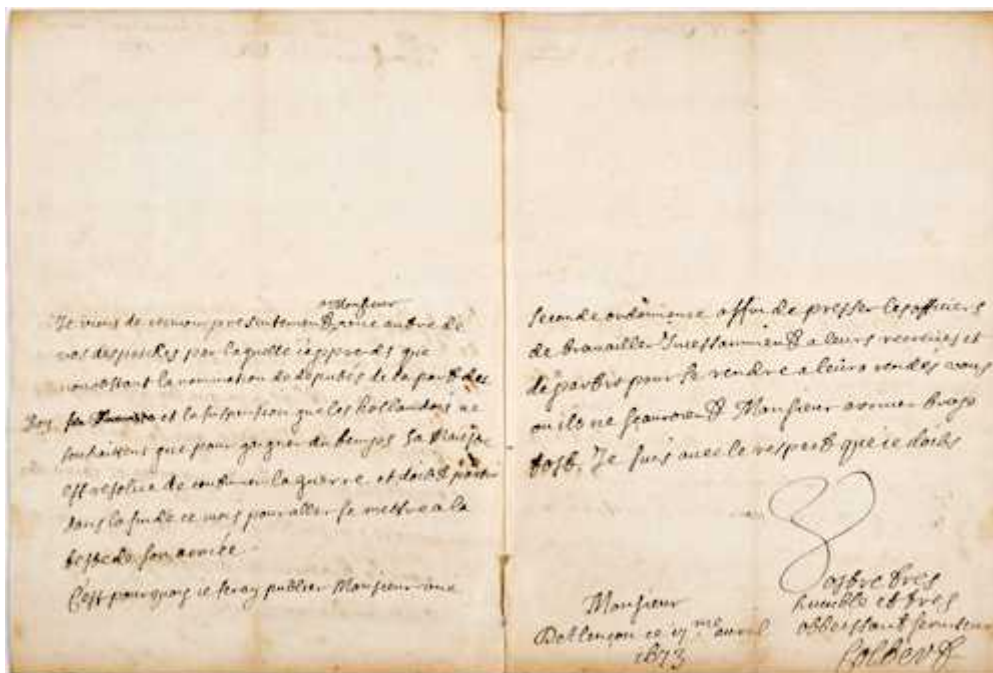 Monsieur
Je viens de recevoir presentement une autre de
vos despesches par laquelle i'apprends que
nonobstant la nomination de deputés de la part des
Roys et la suspension que les hollandois ne
souhaittent que pour gagner du temps, Sa Maiesté
est resolue de continuer la guerre, et doibt partir
dans la fin de ce mois pour aller se mettre a la
teste de son armée
C'est pourquoy ie feray publier Monsieur une
seconde ordonnance affin de presser les officiers
de travailler Incessamment a leurs recreües et
de partir pour se rendre a leurs rendés vous
ou ils ne scauroient Monsieur arriver trop
tost, Je suis avec le respect que ie doibs
Vostre tres
humble et tres
obbeissant serviteur
Colbert
Monsieur
ce me avril
1673